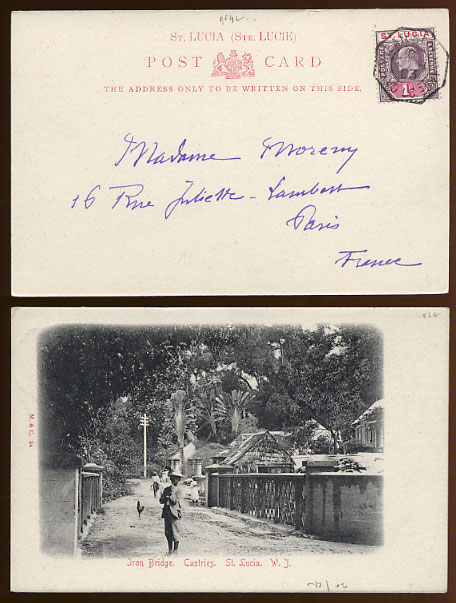 ST. LUCIA (STE. LUCIE)
POST CARD
THE ADDRESS ONLY TO BE WRITTEN ON THIS SIDE.
ST. LUCIA
Madame Moreny
16 Rue Juliette-Lambert
Paris
France
M. & C. 34
Iron Bridge. Castries. St. Lucia. W. I.